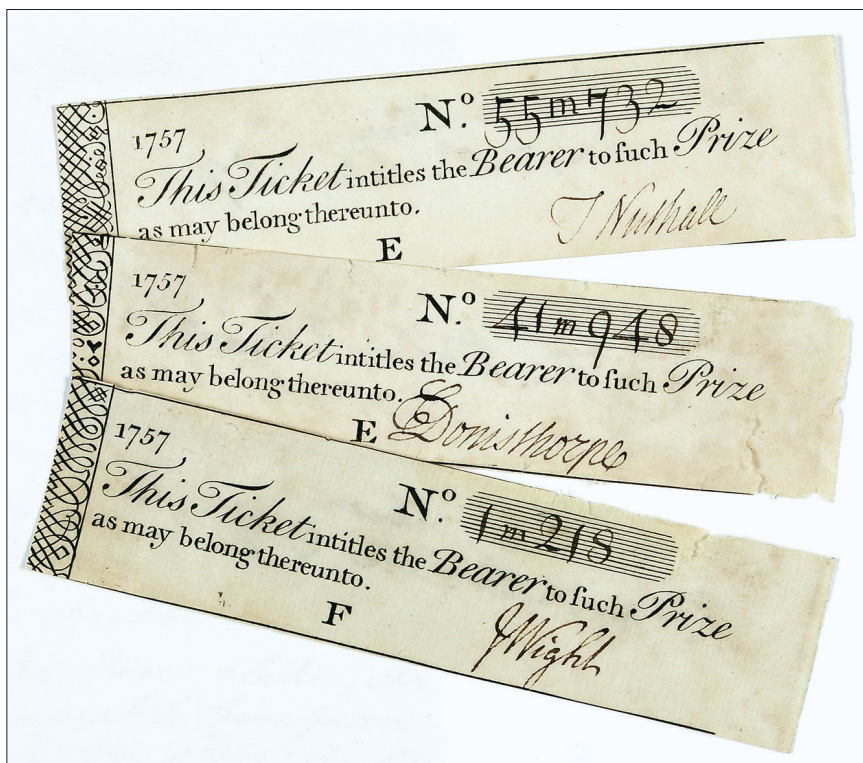 1757
No. 55m732
This Ticket intitles the Bearer to ſuch Prize
as may belong thereunto.
T Nuthall
E
1757
No. 41m948
This Ticket intitles the Bearer to ſuch Prize
as may belong thereunto.
E EDonisthorpe
1757
No. 1m218
This Ticket intitles the Bearer to ſuch Prize
as may belong thereunto.
F
JWight